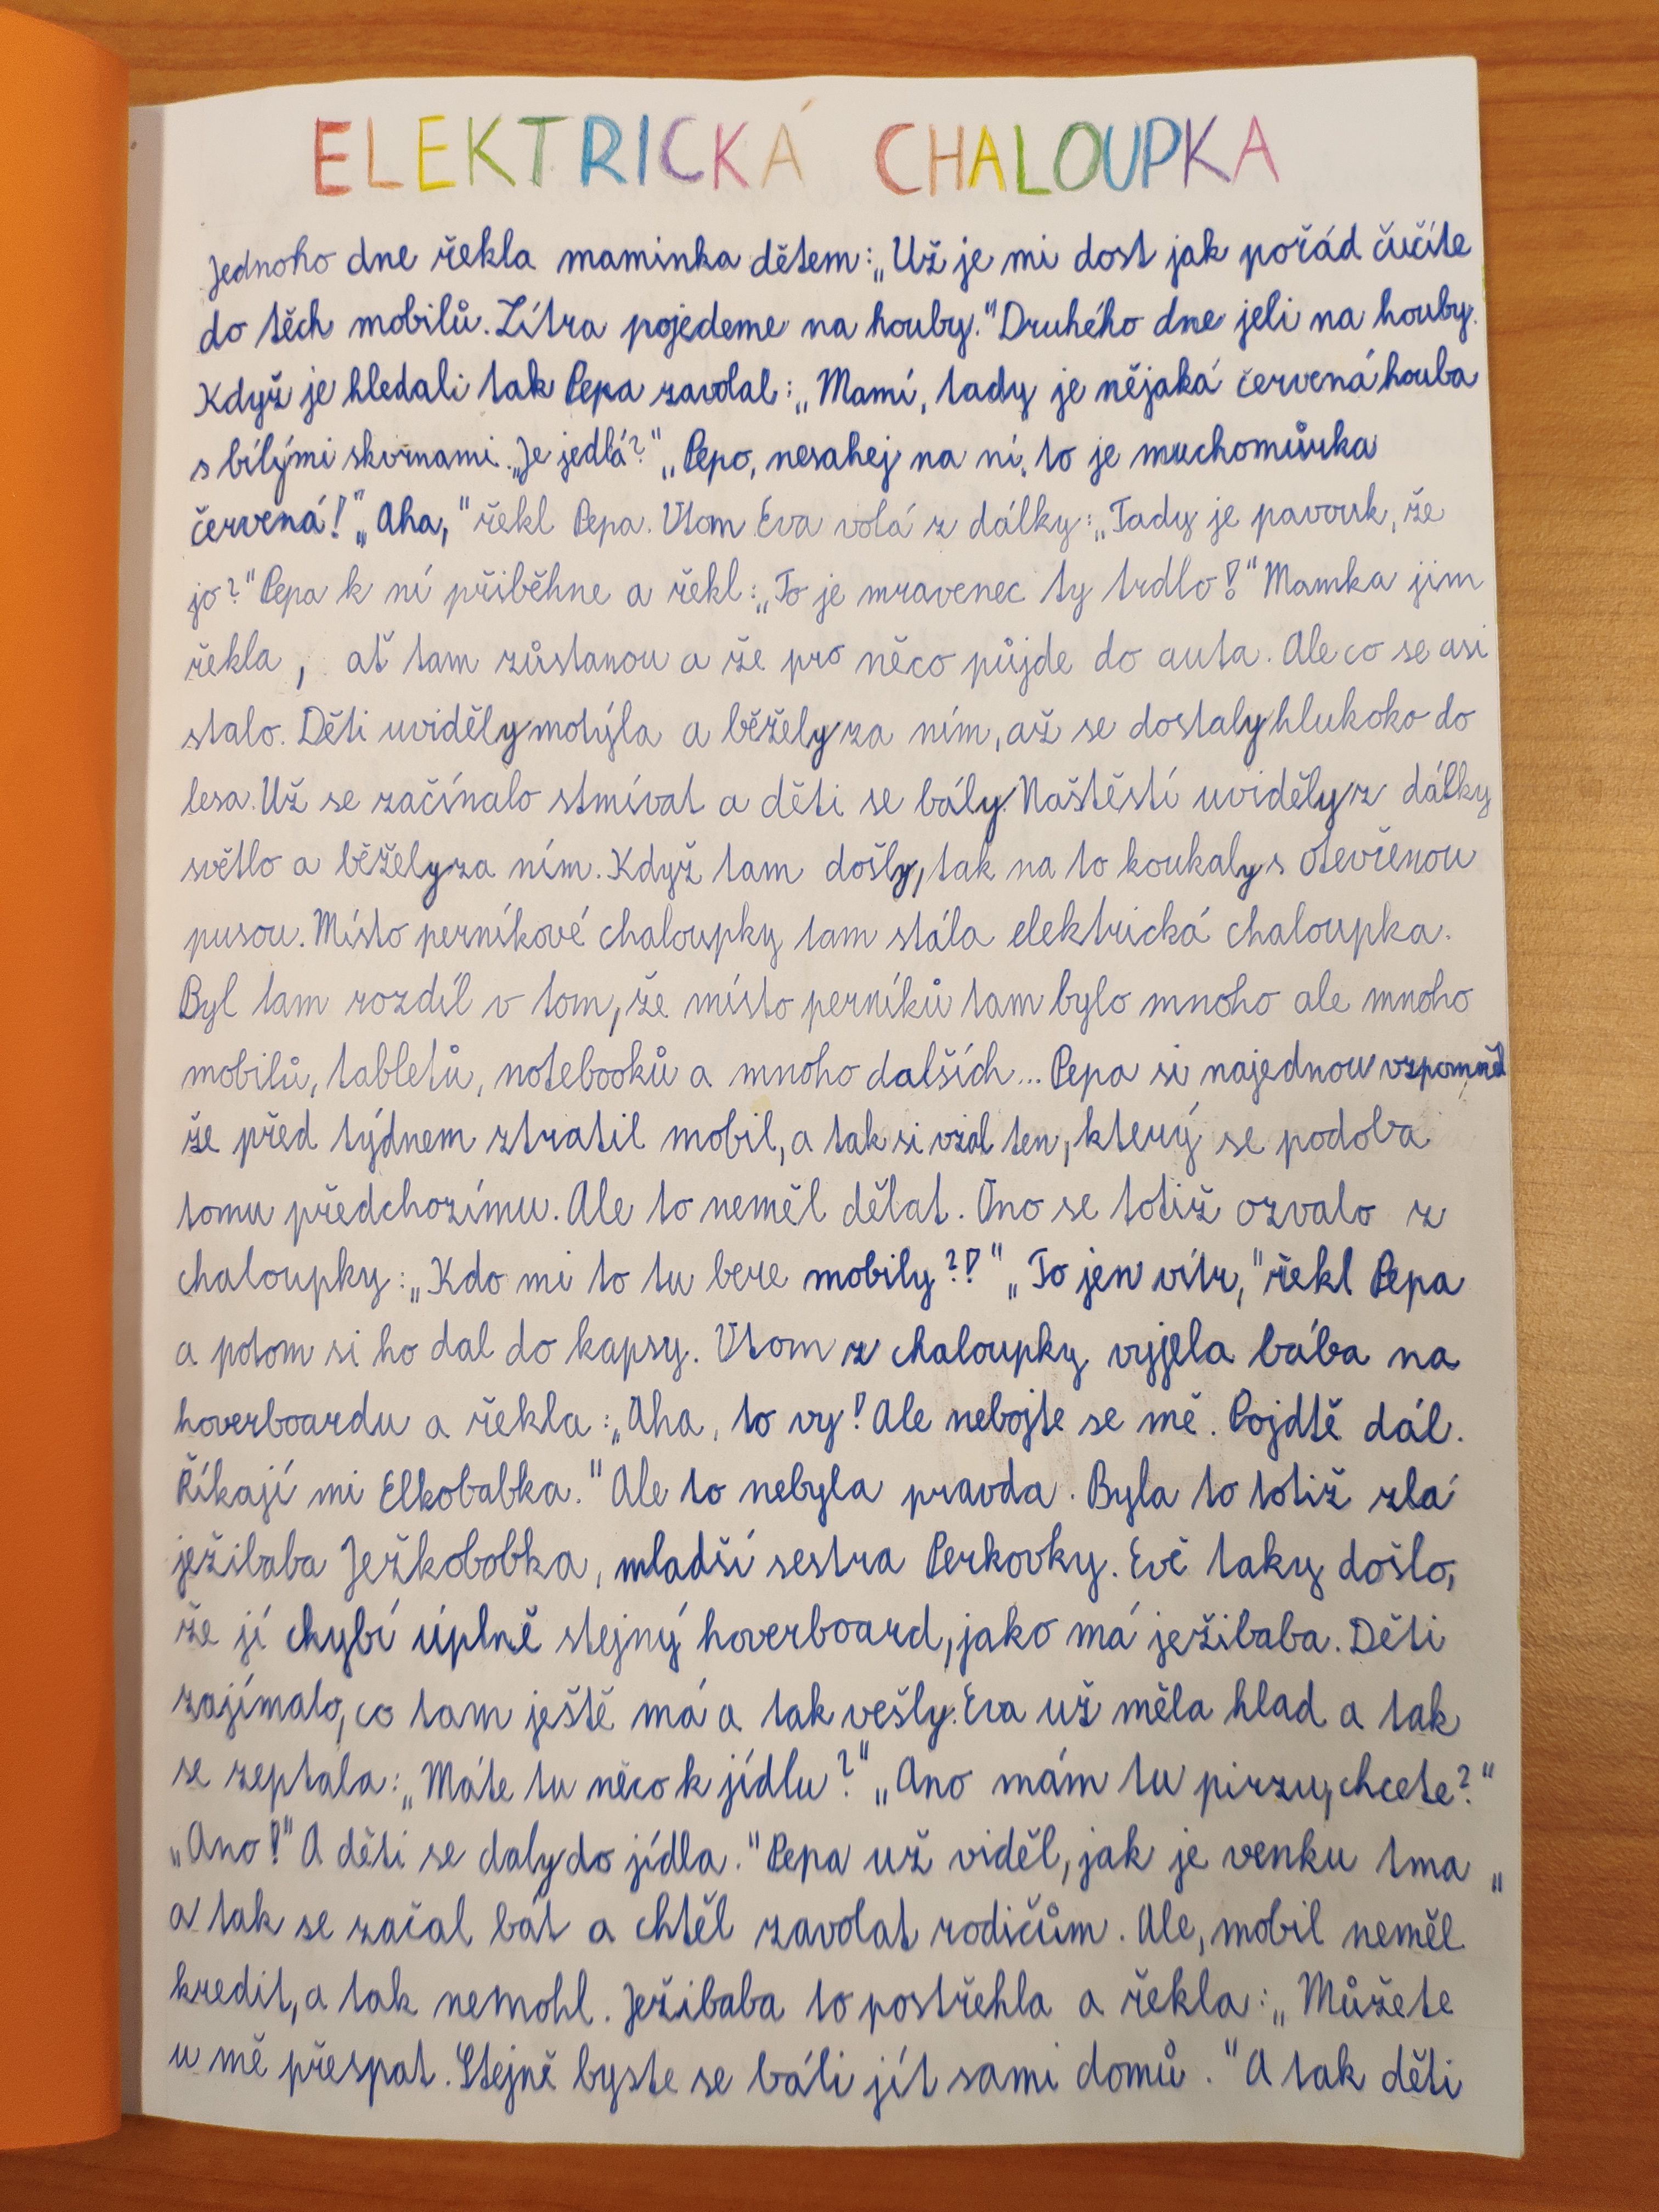 ELEKTRICKÁ CHALOUPKA
Jednoho dne řekla maminka dětem: „Už je mi dost jak pořád čučíte
do těch mobilů. Zítra pojedeme na houby." Druhého dne jeli na houby.
Když je hledali tak Pepa zavolal: „Mami, tady je nějaká červená houba
s bílými skvrnami. „Je jedlá?" „Pepo, nesahej na ni, to je muchomůrka
červená!" „Aha," řekl Pepa. Vtom Eva volá z dálky: „Tady je pavouk, že
jo?" Pepa k ní přiběhne a řekl: „To je mravenec ty trdlo!" Mamka jim
řekla, ať tam zůstanou a že pro něco půjde do auta. Ale co se asi
stalo. Děti uviděly motýla a běžely za ním, až se dostaly hlukoko do
lesa. Už se začínalo stmívat a děti se bály. Naštěstí uviděly z dálky
světlo a běžely za ním. Když tam došly, tak na to koukaly s otevřenou
pusou. Místo perníkové chaloupky tam stála elektrická chaloupka.
Byl tam rozdíl v tom, že místo perníků tam bylo mnoho ale mnoho
mobilů, tabletů, notebooků a mnoho dalších... Pepa si najednou vzpomněl,
že před týdnem ztratil mobil, a tak si vzal ten, který se podoba
tomu předchozímu. Ale to neměl dělat. Ono se totiž ozvalo z
chaloupky: „Kdo mi to tu bere mobily?!" „To jen vítr," řekl Pepa
a potom si ho dal do kapsy. Vtom z chaloupky vyjela bába na
hoverboardu a řekla: „Aha, to vy! Ale nebojte se mě. Pojdtě dál.
Říkají mi Elkobabka." Ale to nebyla pravda. Byla to totiž zlá
ježibaba Ježkobobka, mladší sestra Perkovky. Evě taky došlo,
že jí chybí úplně stejný hoverboard, jako má ježibaba. Děti
zajímalo, co tam ještě má a tak vešly. Eva už měla hlad a tak
se zeptala: „Máte tu něco k jídlu?" „Ano mám tu pizzu, chcete?"
„Ano!" A děti se daly do jídla." Pepa už viděl, jak je venku tma „
a tak se začal bát a chtěl zavolat rodičům. Ale, mobil neměl
kredit, a tak nemohl. Ježibaba to postřehla a řekla: „Můžete
u mě přespat. Stejně byste se báli jít sami domů." A tak děti